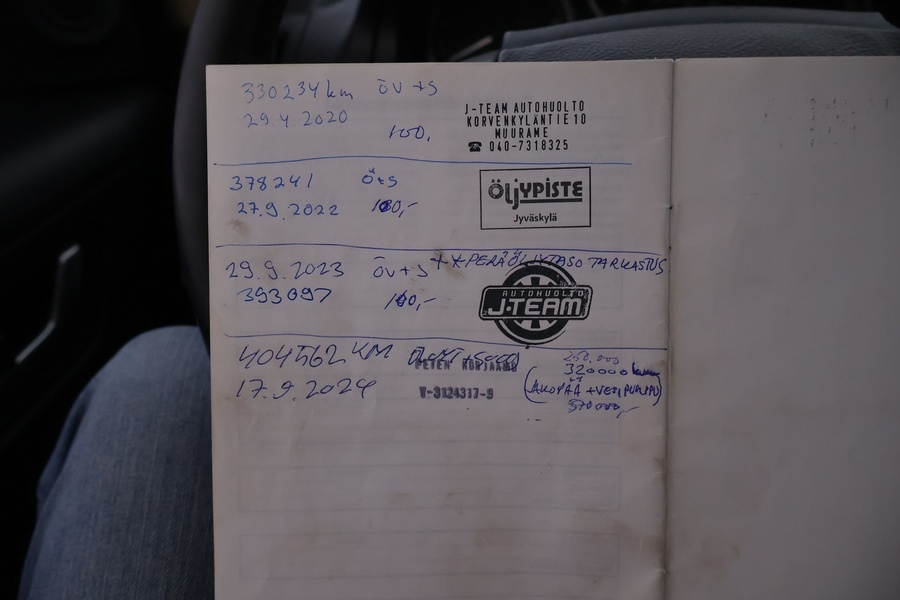 330234 km ÖV+S
29.4.2020
100,
J-TEAM AUTOHUOLTO
KORVENKYLÄNTIE 10
MUURAME
☎ 040-7318325
378241 Ö+S
27.9.2022
ÖLJYPISTE
Jyväskylä
29.9.2023 ÖV+S ++PERÄÖLJYTASO TARKASTUS
393097
AUTOHUOLTO
J-TEAM
404562 KM
17.9.2024
PETEN KORJAAMO
Y-3124317-9
250.000
320000 km
(JAKOPÄÄ +VESIPUMPPU)
370000,-